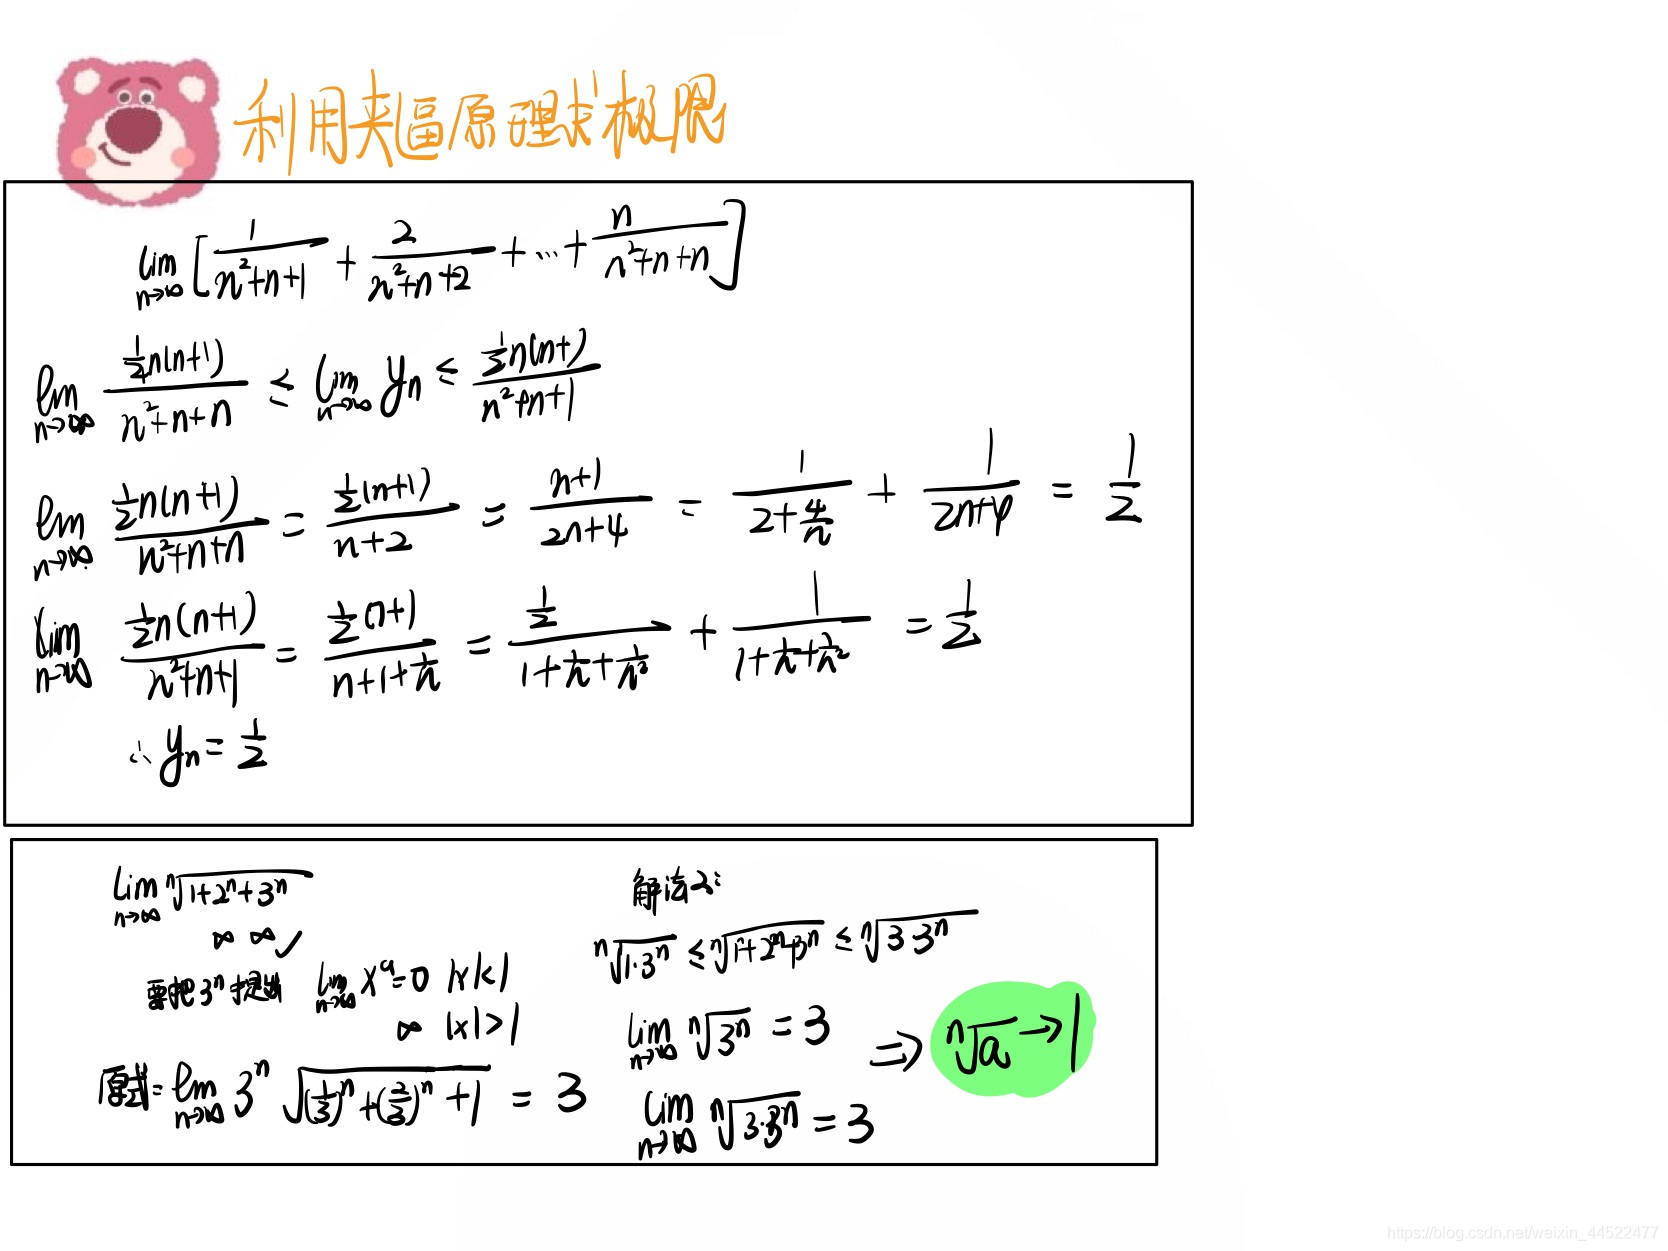 利用夹逼原理求极限
lim n→∞ [ 1/(n²+n+1) + 2/(n²+n+2) + … + n/(n²+n+n) ]
lim n→∞ ½n(n+1)/(n²+n+n) ≤ lim n→∞ yn ≤ ½n(n+)/(n²+n+1)
lim n→∞ ½n(n+1)/(n²+n+n) = ½(n+1)/(n+2) = (n+1)/(2n+4) = 1/(2+4/n) + 1/(2n+4) = 1/2
lim n→∞ ½n(n+1)/(n²+n+1) = ½(n+1)/(n+1+1/n) = ½/(1+1/n+1/n²) + 1/(1+1/n+1/n²) = 1/2
∴ yn = 1/2
lim n→∞ ⁿ√(1+2ⁿ+3ⁿ)
∞ ∞ ✓
要把3ⁿ提出 lim n→∞ xⁿ=0 |x|<1
∞ |x|>1
原式= lim n→∞ 3 ⁿ√((1/3)ⁿ+(2/3)ⁿ+1) = 3
解法2:
ⁿ√(1·3ⁿ) ≤ ⁿ√(1+2ⁿ+3ⁿ) ≤ ⁿ√(3·3ⁿ)
lim n→∞ ⁿ√(3ⁿ) = 3 ⇒ ⁿ√a → 1
lim n→∞ ⁿ√(3·3ⁿ) = 3
https://blog.csdn.net/weixin_44522477